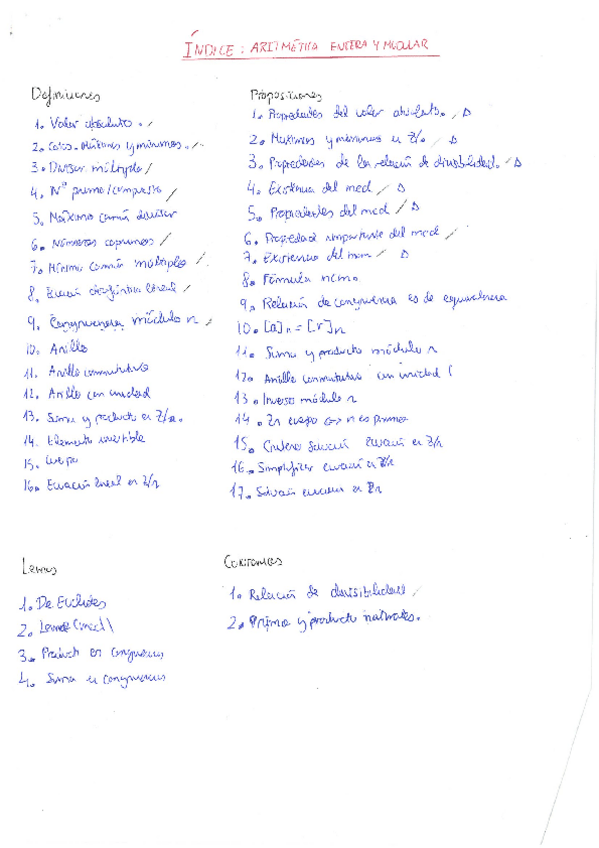 ÍNDICE: ARITMÉTICA ENTERA Y MODULAR
Definiciones
1. Valor absoluto
2. Cotas. Máximos y mínimos.
3. Divisor múltiplo
4. Nº primo/compuesto
5. Máximo común divisor
6. Números coprimos
7. Mínimo común múltiplo
8. Ecuación diofántica lineal
9. Congruencia módulo n
10. Anillo
11. Anillo conmutativo
12. Anillo con unidad
13. Suma y producto en Z/n.
14. Elemento invertible
15. Cuerpo
16. Ecuación lineal en Z/n
Proposiciones
1. Propiedades del valor absoluto. Δ
2. Máximos y mínimos en Δ
3. Propiedades de la relación de divisibilidad. Δ
4. Existencia del mcd Δ
5. Propiedades del mcd Δ
6. Propiedad importante del mcd
7. Existencia del mcm Δ
8. Fórmula mcm
9. Relación de congruencia es de equivalencia
10. [a]n = [r]n
11. Suma y producto módulo n
12. Anillo conmutativo con unidad
13. Inverso módulo n
14. Zn cuerpo <=> n es primo
15. Criterio solución ecuación en Z/n
16. Simplificar ecuación en Z/n
17. Solución ecuación en Zn
Lemas
1. De Euclides
2. Lema (mcd)
3. Producto en congruencias
4. Suma en congruencias
Corolarios
1. Relación de divisibilidad
2. Primo y producto naturales.